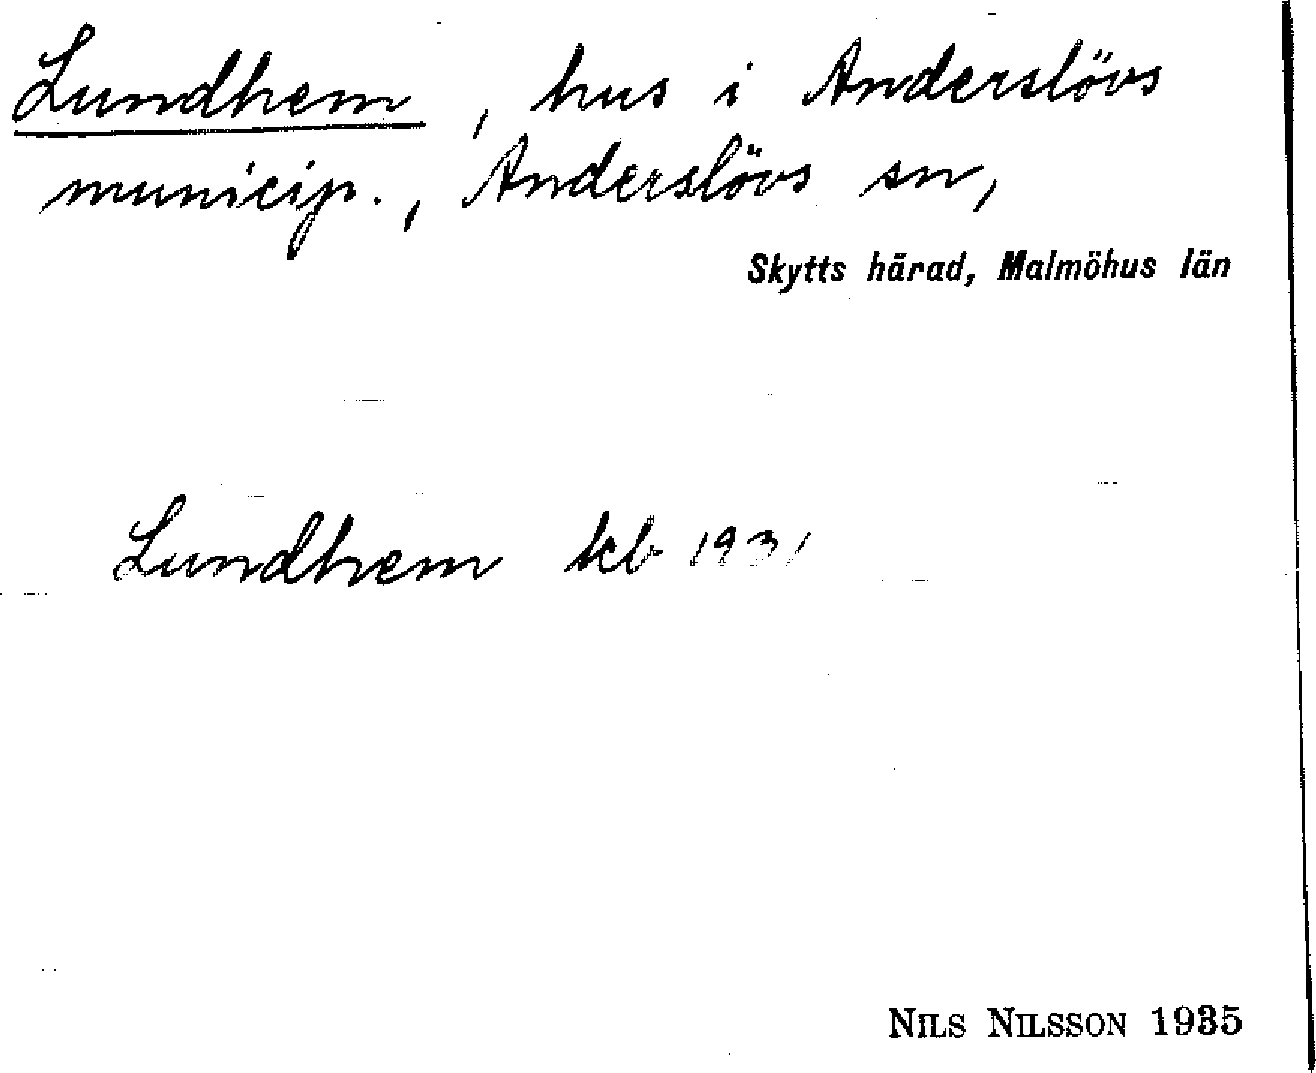 Lundhem, hus i Anderslövs
municip., Anderslövs sn,
Skytts härad, Malmöhus län
Lundhem kb 1931
NILS NILSSON 1935